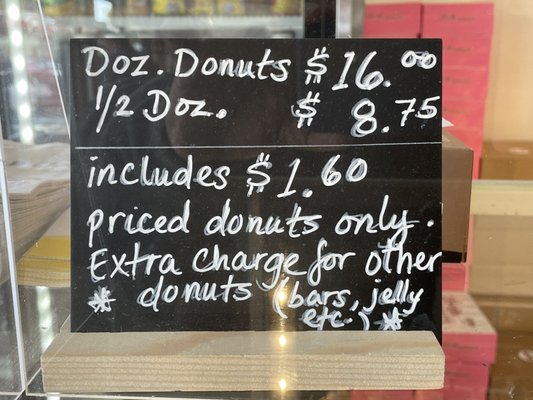 Doz. Donuts $16.00
1/2 Doz. $ 8.75
includes $1.60
priced donuts only.
Extra charge for other
* donuts (bars, jelly
etc.) *